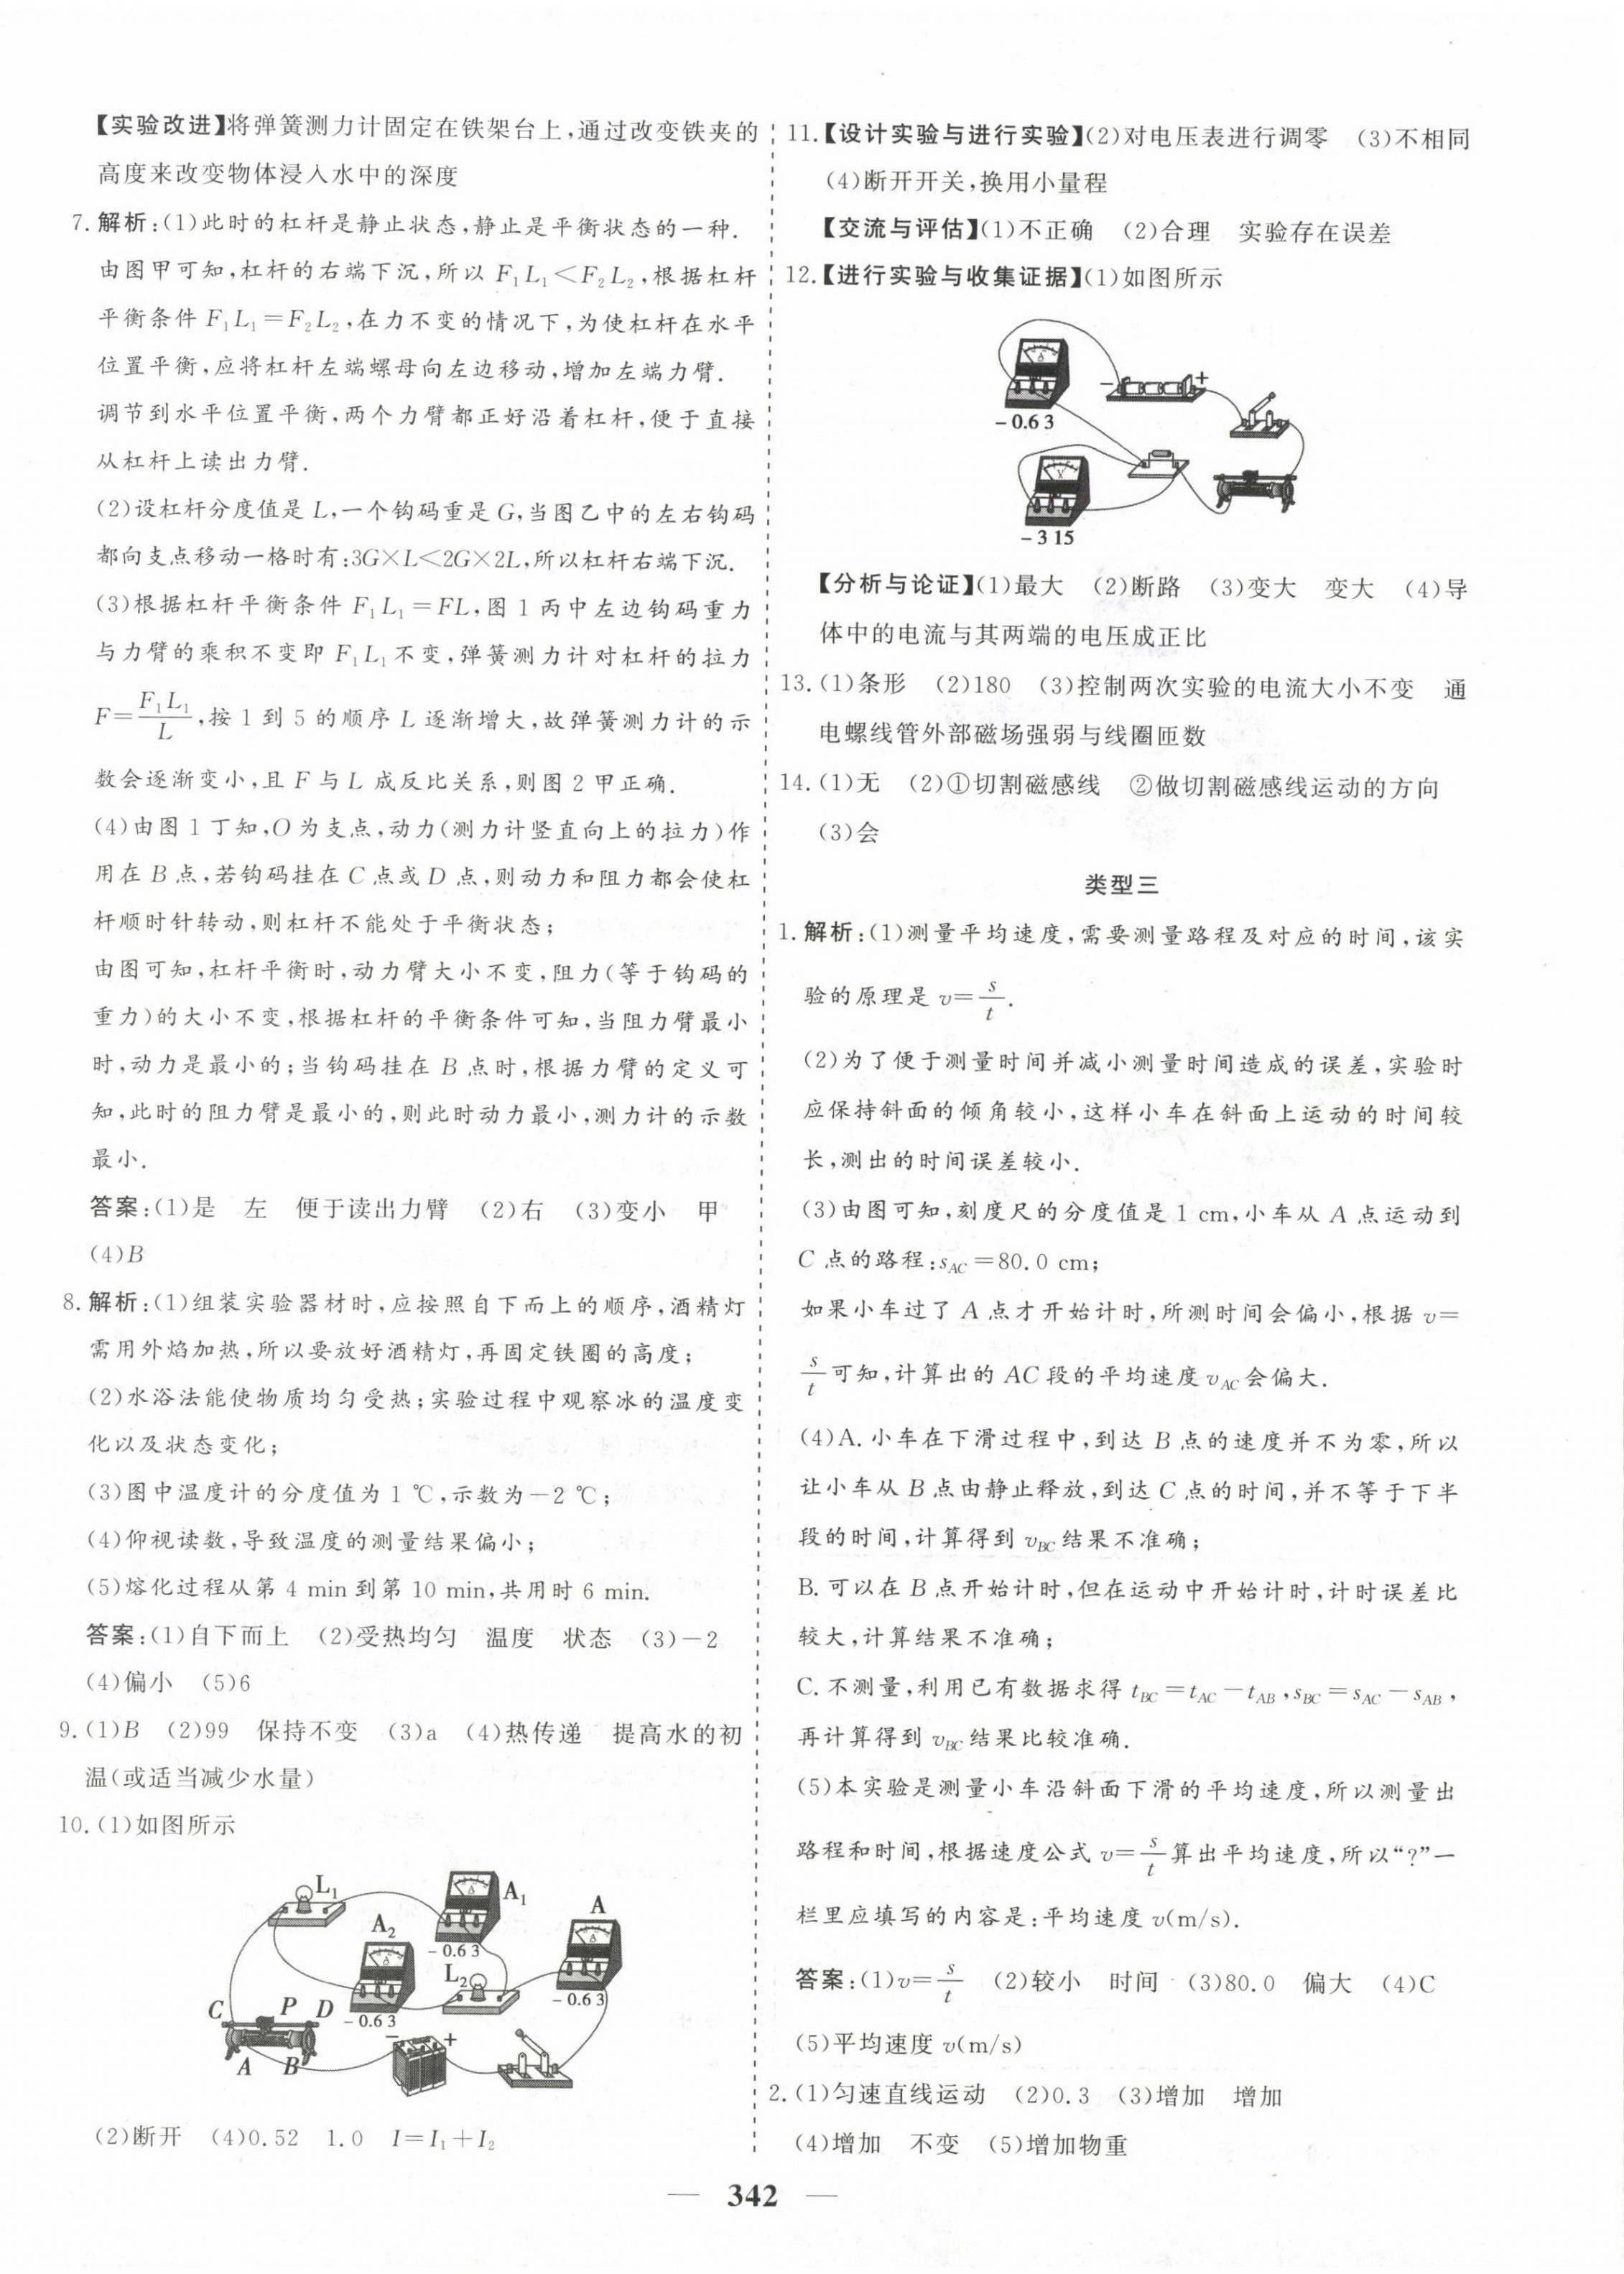 【实验改进】将弹簧测力计固定在铁架台上,通过改变铁夹的
高度来改变物体浸入水中的深度
7. 解析:(1)此时的杠杆是静止状态,静止是平衡状态的一种.
由图甲可知,杠杆的右端下沉,所以 F₁L₁<F₂L₂,根据杠杆
平衡条件 F₁L₁=F₂L₂,在力不变的情况下,为使杠杆在水平
位置平衡,应将杠杆左端螺母向左边移动,增加左端力臂.
调节到水平位置平衡,两个力臂都正好沿着杠杆,便于直接
从杠杆上读出力臂.
(2)设杠杆分度值是 L,一个钩码重是 G,当图乙中的左右钩码
都向支点移动一格时有:3G×L<2G×2L,所以杠杆右端下沉.
(3)根据杠杆平衡条件 F₁L₁=FL,图 1 丙中左边钩码重力
与力臂的乘积不变即 F₁L₁ 不变,弹簧测力计对杠杆的拉力
F=F₁L₁/L,按 1 到 5 的顺序 L 逐渐增大,故弹簧测力计的示
数会逐渐变小,且 F 与 L 成反比关系,则图 2 甲正确.
(4)由图 1 丁知,O 为支点,动力(测力计竖直向上的拉力)作
用在 B 点,若钩码挂在 C 点或 D 点,则动力和阻力都会使杠
杆顺时针转动,则杠杆不能处于平衡状态;
由图可知,杠杆平衡时,动力臂大小不变,阻力(等于钩码的
重力)的大小不变,根据杠杆的平衡条件可知,当阻力臂最小
时,动力是最小的;当钩码挂在 B 点时,根据力臂的定义可
知,此时的阻力臂是最小的,则此时动力最小,测力计的示数
最小.
答案:(1)是 左 便于读出力臂 (2)右 (3)变小 甲
(4)B
8. 解析:(1)组装实验器材时,应按照自下而上的顺序,酒精灯
需用外焰加热,所以要放好酒精灯,再固定铁圈的高度;
(2)水浴法能使物质均匀受热;实验过程中观察冰的温度变
化以及状态变化;
(3)图中温度计的分度值为 1 ℃,示数为-2 ℃;
(4)仰视读数,导致温度的测量结果偏小;
(5)熔化过程从第 4 min 到第 10 min,共用时 6 min.
答案:(1)自下而上 (2)受热均匀 温度 状态 (3)-2
(4)偏小 (5)6
9. (1)B (2)99 保持不变 (3)a (4)热传递 提高水的初
温(或适当减少水量)
10. (1)如图所示
L₁
A₁
A₂
A
-0.6 3
L₂
-0.6 3
C P D
-0.6 3
- +
A B
(2)断开 (4)0.52 1.0 I=I₁+I₂
11.【设计实验与进行实验】(2)对电压表进行调零 (3)不相同
(4)断开开关,换用小量程
【交流与评估】(1)不正确 (2)合理 实验存在误差
12.【进行实验与收集证据】(1)如图所示
A
- +
-0.6 3
V
-3 15
【分析与论证】(1)最大 (2)断路 (3)变大 变大 (4)导
体中的电流与其两端的电压成正比
13. (1)条形 (2)180 (3)控制两次实验的电流大小不变 通
电螺线管外部磁场强弱与线圈匝数
14. (1)无 (2)①切割磁感线 ②做切割磁感线运动的方向
(3)会
类型三
1. 解析:(1)测量平均速度,需要测量路程及对应的时间,该实
验的原理是 v=s/t.
(2)为了便于测量时间并减小测量时间造成的误差,实验时
应保持斜面的倾角较小,这样小车在斜面上运动的时间较
长,测出的时间误差较小.
(3)由图可知,刻度尺的分度值是 1 cm,小车从 A 点运动到
C 点的路程:s_AC=80.0 cm;
如果小车过了 A 点才开始计时,所测时间会偏小,根据 v=
s/t可知,计算出的 AC 段的平均速度 v_AC 会偏大.
(4)A. 小车在下滑过程中,到达 B 点的速度并不为零,所以
让小车从 B 点由静止释放,到达 C 点的时间,并不等于下半
段的时间,计算得到 v_BC 结果不准确;
B. 可以在 B 点开始计时,但在运动中开始计时,计时误差比
较大,计算结果不准确;
C. 不测量,利用已有数据求得 t_BC=t_AC-t_AB,s_BC=s_AC-s_AB,
再计算得到 v_BC 结果比较准确.
(5)本实验是测量小车沿斜面下滑的平均速度,所以测量出
路程和时间,根据速度公式 v=s/t算出平均速度,所以“?”一
栏里应填写的内容是:平均速度 v(m/s).
答案:(1)v=s/t (2)较小 时间 (3)80.0 偏大 (4)C
(5)平均速度 v(m/s)
2. (1)匀速直线运动 (2)0.3 (3)增加 增加
(4)增加 不变 (5)增加物重
— 342 —